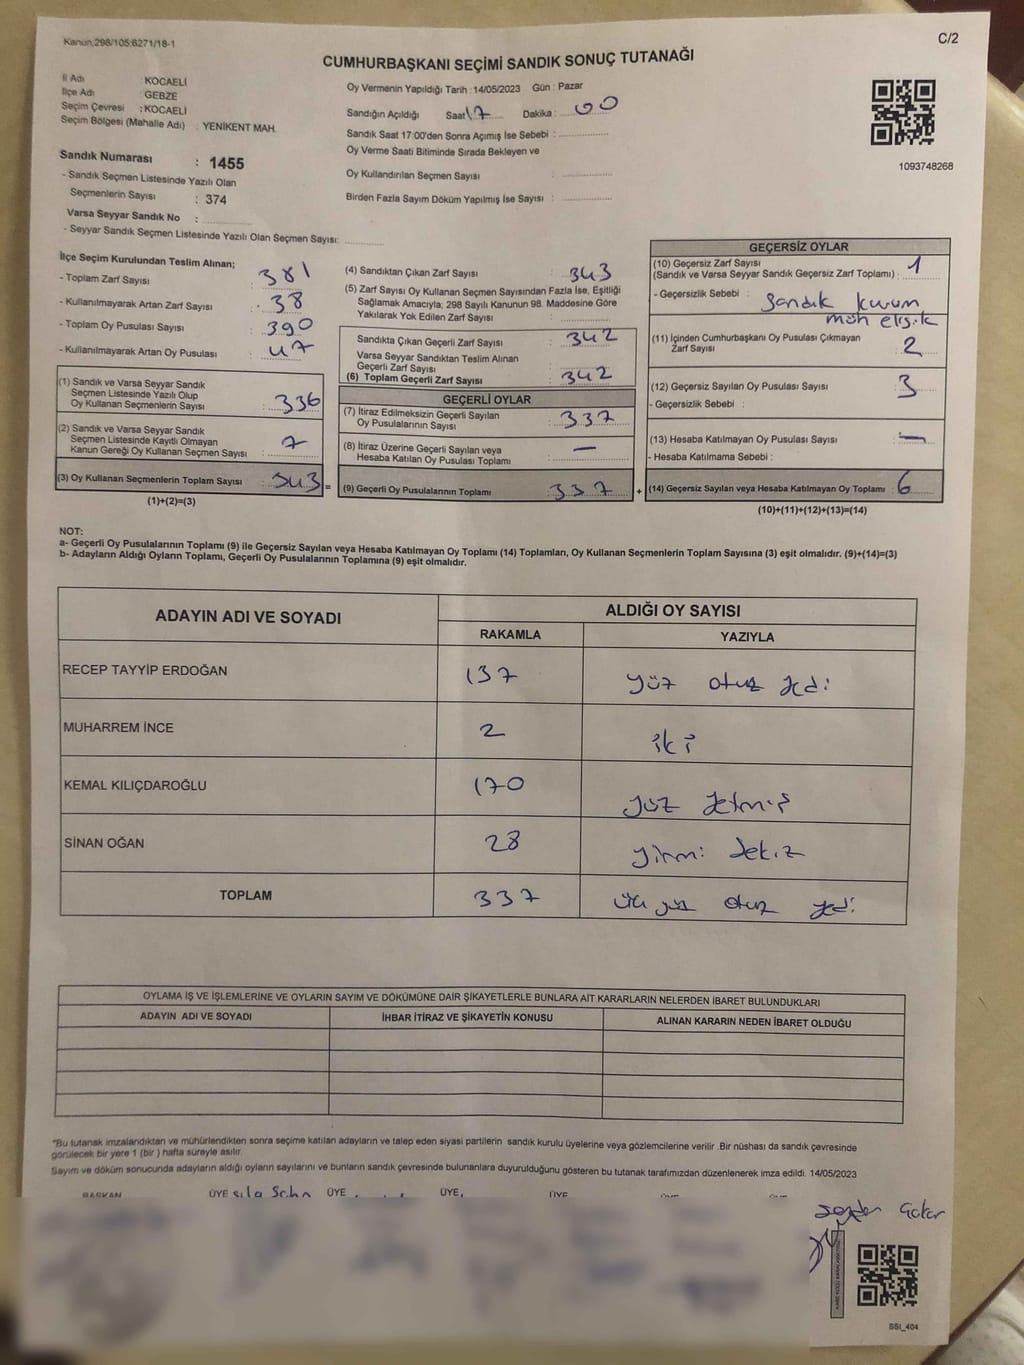 Kanun;298/105;6271/18-1
C/2
CUMHURBAŞKANI SEÇİMİ SANDIK SONUÇ TUTANAĞI
İl Adı : KOCAELİ
İlçe Adı : GEBZE
Seçim Çevresi : KOCAELİ
Seçim Bölgesi (Mahalle Adı) : YENİKENT MAH.
Sandık Numarası : 1455
- Sandık Seçmen Listesinde Yazılı Olan
Seçmenlerin Sayısı : 374
Varsa Seyyar Sandık No :
- Seyyar Sandık Seçmen Listesinde Yazılı Olan Seçmen Sayısı:
Oy Vermenin Yapıldığı Tarih : 14/05/2023 Gün : Pazar
Sandığın Açıldığı Saat 17 Dakika : 00
Sandık Saat 17:00'den Sonra Açımış İse Sebebi :
Oy Verme Saati Bitiminde Sırada Bekleyen ve
Oy Kullandırılan Seçmen Sayısı :
Birden Fazla Sayım Döküm Yapılmış İse Sayısı :
1093748268
İlçe Seçim Kurulundan Teslim Alınan;
- Toplam Zarf Sayısı : 381
- Kullanılmayarak Artan Zarf Sayısı : 38
- Toplam Oy Pusulası Sayısı : 390
- Kullanılmayarak Artan Oy Pusulası : 47
(1) Sandık ve Varsa Seyyar Sandık
Seçmen Listesinde Yazılı Olup
Oy Kullanan Seçmenlerin Sayısı : 336
(2) Sandık ve Varsa Seyyar Sandık
Seçmen Listesinde Kayıtlı Olmayan
Kanun Gereği Oy Kullanan Seçmen Sayısı : 7
(3) Oy Kullanan Seçmenlerin Toplam Sayısı : 343
(1)+(2)=(3)
(4) Sandıktan Çıkan Zarf Sayısı : 343
(5) Zarf Sayısı Oy Kullanan Seçmen Sayısından Fazla İse, Eşitliği
Sağlamak Amacıyla; 298 Sayılı Kanunun 98. Maddesine Göre
Yakılarak Yok Edilen Zarf Sayısı :
Sandıkta Çıkan Geçerli Zarf Sayısı : 342
Varsa Seyyar Sandıktan Teslim Alınan
Geçerli Zarf Sayısı :
(6) Toplam Geçerli Zarf Sayısı : 342
GEÇERLİ OYLAR
(7) İtiraz Edilmeksizin Geçerli Sayılan
Oy Pusulalarının Sayısı : 337
(8) İtiraz Üzerine Geçerli Sayılan veya
Hesaba Katılan Oy Pusulası Toplamı : —
= (9) Geçerli Oy Pusulalarının Toplamı : 337 +
GEÇERSİZ OYLAR
(10) Geçersiz Zarf Sayısı
(Sandık ve Varsa Seyyar Sandık Geçersiz Zarf Toplamı) : 1
- Geçersizlik Sebebi : Sandık kurum
müh eksik
(11) İçinden Cumhurbaşkanı Oy Pusulası Çıkmayan
Zarf Sayısı : 2
(12) Geçersiz Sayılan Oy Pusulası Sayısı : 3
- Geçersizlik Sebebi :
(13) Hesaba Katılmayan Oy Pusulası Sayısı : —
- Hesaba Katılmama Sebebi :
(14) Geçersiz Sayılan veya Hesaba Katılmayan Oy Toplamı : 6
(10)+(11)+(12)+(13)=(14)
NOT:
a- Geçerli Oy Pusulalarının Toplamı (9) ile Geçersiz Sayılan veya Hesaba Katılmayan Oy Toplamı (14) Toplamları, Oy Kullanan Seçmenlerin Toplam Sayısına (3) eşit olmalıdır. (9)+(14)=(3)
b- Adayların Aldığı Oyların Toplamı, Geçerli Oy Pusulalarının Toplamına (9) eşit olmalıdır.
ADAYIN ADI VE SOYADI ALDIĞI OY SAYISI
RAKAMLA YAZIYLA
RECEP TAYYİP ERDOĞAN 137 yüz otuz yedi
MUHARREM İNCE 2 iki
KEMAL KILIÇDAROĞLU 170 yüz yetmiş
SİNAN OĞAN 28 yirmi sekiz
TOPLAM 337 üç yüz otuz yedi
OYLAMA İŞ VE İŞLEMLERİNE VE OYLARIN SAYIM VE DÖKÜMÜNE DAİR ŞİKAYETLERLE BUNLARA AİT KARARLARIN NELERDEN İBARET BULUNDUKLARI
ADAYIN ADI VE SOYADI İHBAR İTİRAZ VE ŞİKAYETİN KONUSU ALINAN KARARIN NEDEN İBARET OLDUĞU
*Bu tutanak imzalandıktan ve mühürlendikten sonra seçime katılan adayların ve talep eden siyasi partilerin sandık kurulu üyelerine veya gözlemcilerine verilir .Bir nüshası da sandık çevresinde
görülecek bir yere 1 (bir ) hafta süreyle asılır.
Sayım ve döküm sonucunda adayların aldığı oyların sayılarını ve bunların sandık çevresinde bulunanlara duyurulduğunu gösteren bu tutanak tarafımızdan düzenlenerek imza edildi. 14/05/2023
BAŞKAN ÜYE ÜYE ÜYE, ÜYE
SSI_404